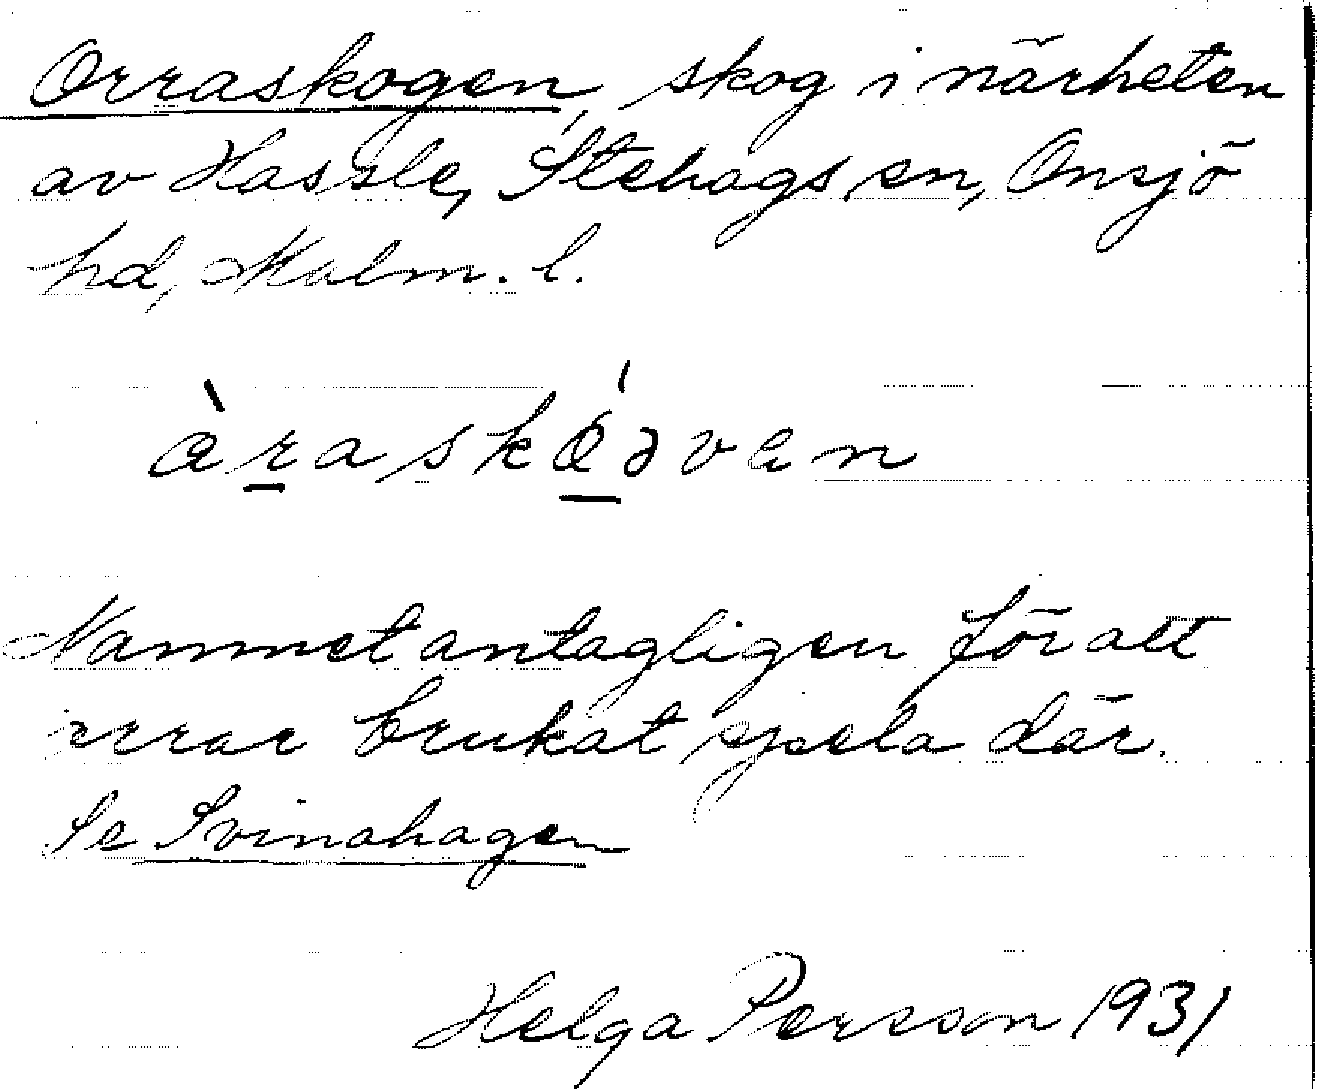 Orraskogen, skog i närheten
av Hassle, Stehags sn, Onsjö
hd, Malm. l.
àraskǿəven
Namnet antagligen för att
orrar brukat spela där.
Se Svinahagen
Helga Persson 1931